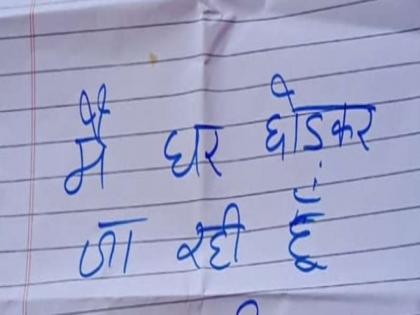 मैं घर छोड़कर
जा रही हूँ